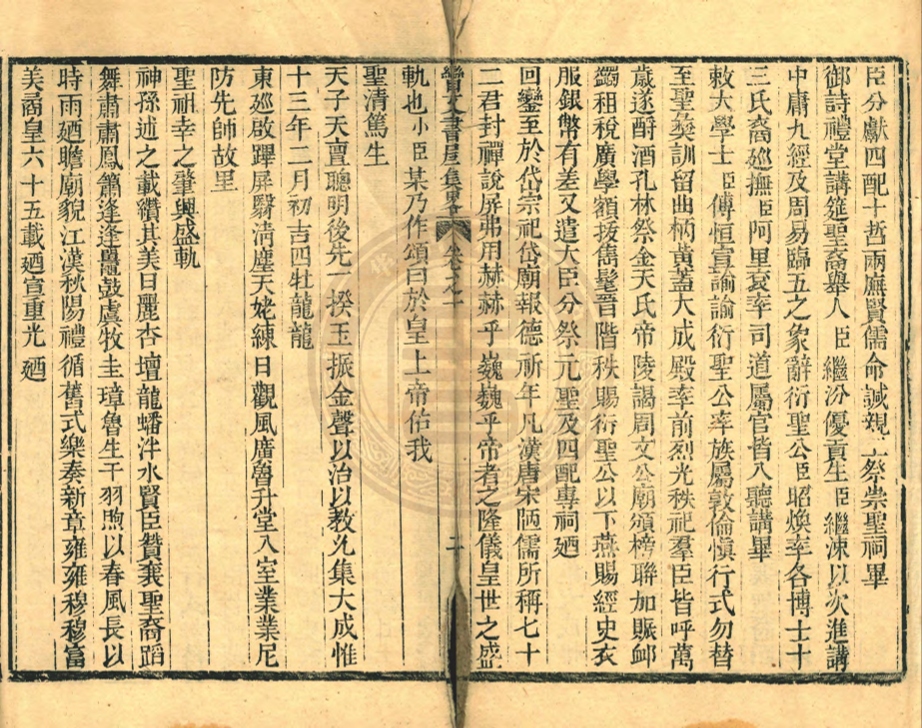 臣分獻四配十哲兩廡賢儒命諴親王祭崇聖祠畢
御詩禮堂講筵聖裔舉人臣繼汾優貢生臣繼涑以次進講
中庸九經及周易臨五之象辭衍聖公臣昭煥率各博士十
三氏裔廵撫臣阿里衮率司道屬官皆入聽講畢
敕大學士臣傅恒宣諭諭衍聖公率族屬敦倫愼行式勿替
至聖彝訓留曲柄黃蓋大成殿率前烈光秩祀羣臣皆呼萬
歲遂酹酒孔林祭金天氏帝陵謁周文公廟頒榜聯加賑邺
蠲租稅廣學額拔雋髦晉階秩賜衍聖公以下燕賜經史衣
服銀幣有差又遣大臣分祭元聖及四配專祠廼
回鑾至於岱宗祀岱廟報德祈年凡漢唐宋陋儒所稱七十
二君封禪說屏弗用赫赫乎巍巍乎帝者之隆儀皇世之盛
軌也小臣某乃作頌曰於皇上帝佑我
聖清篤生
天子天亶聰明後先一揆玉振金聲以治以教允集大成惟
十三年二月初吉四牡龍龍
東廵啟蹕屏翳淸塵天姥練日觀風廣魯升堂入室業業尼
防先師故里
聖祖幸之肇興盛軌
神孫述之載纘其美日麗杏壇龍蟠泮水賢臣贊襄聖裔蹈
舞肅肅鳳簫逢逢鼉鼓虞牧圭璋魯生干羽煦以春風長以
時雨廼瞻廟貌江漢秋陽禮循舊式樂奏新章雍雍穆穆富
美矞皇六十五載廼宣重光廼